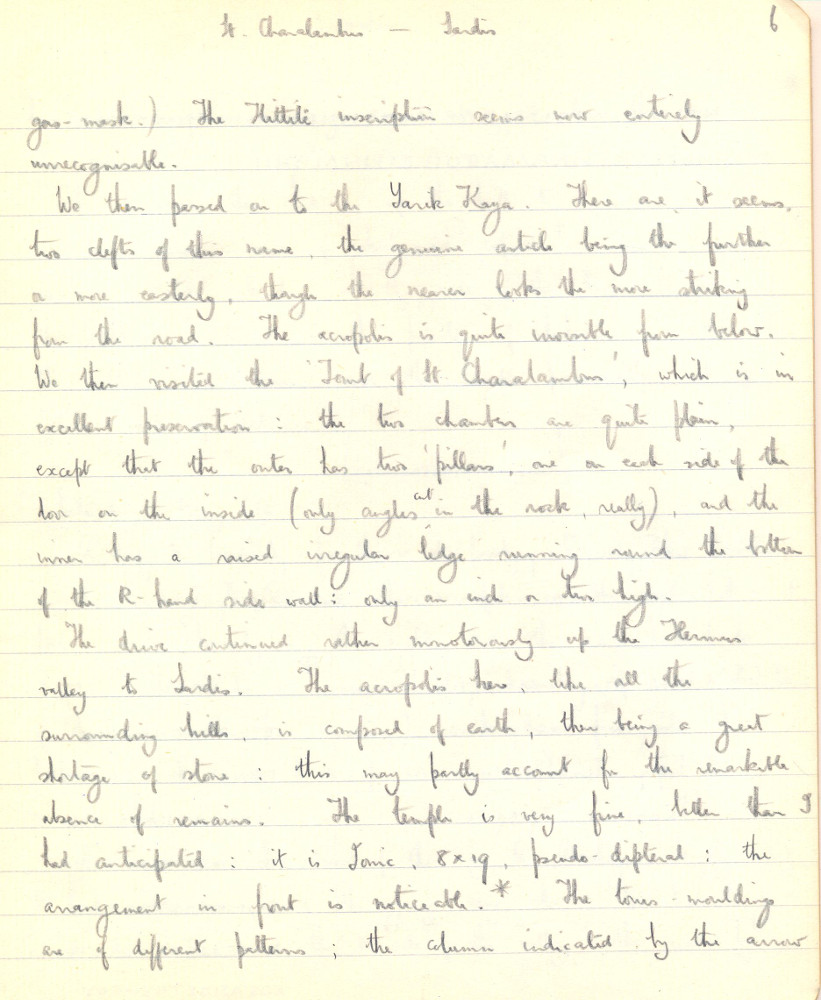 St. Charalambus — Sardis 6
gas-mask.) The Hittite inscription seems now entirely
unrecognisable.
We then passed on to the Yarik Kaya. There are, it seems,
two clefts of this name, the genuine article being the further
or more easterly, though the nearer looks the more striking
from the road. The acropolis is quite invisible from below.
We then visited the 'Tomb of St. Charalambus', which is in
excellent preservation : the two chambers are quite plain,
except that the outer has two 'pillars', one on each side of the
door on the inside (only angles cut in the rock, really), and the
inner has a raised irregular ledge running round the bottom
of the R-hand side wall : only an inch or two high.
The drive continued rather monotonously up the Hermus
valley to Sardis. The acropolis here, like all the
surrounding hills, is composed of earth, there being a great
shortage of stone : this may partly account for the remarkable
absence of remains. The temple is very fine, better than I
had anticipated : it is Ionic, 8×19, pseudo-dipteral : the
arrangement in front is noticeable.* The torus-mouldings
are of different patterns ; the column indicated by the arrow